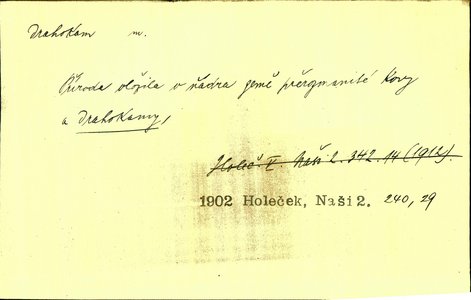 Drahokam m.
Příroda vložila v ňádra země přerozmanité kovy
a drahokamy,
Holeč. I. Naši 2. 342. 14 (1912).
1902 Holeček, Naši 2. 240, 29